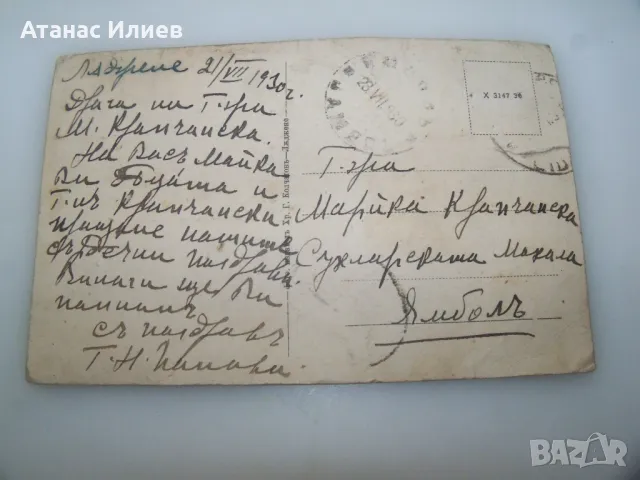 Атанас Илиев
Лъджене 21/VII 1930 г.
Драга ни Г-жа
М. Крапчанска.
На Васъ майка
Ви децата и
Г-нъ Крапчански
пращаме нашите
сърдечни поздрави.
Винаги ще Ви
помнимъ
съ поздравъ
Г. Н. Попови
Хр. Г. Колчаговъ - Лъджене
X 3247 26
Г-жа
Марийка Крапчанска
Сухларската Махала
Ямболъ
bazar